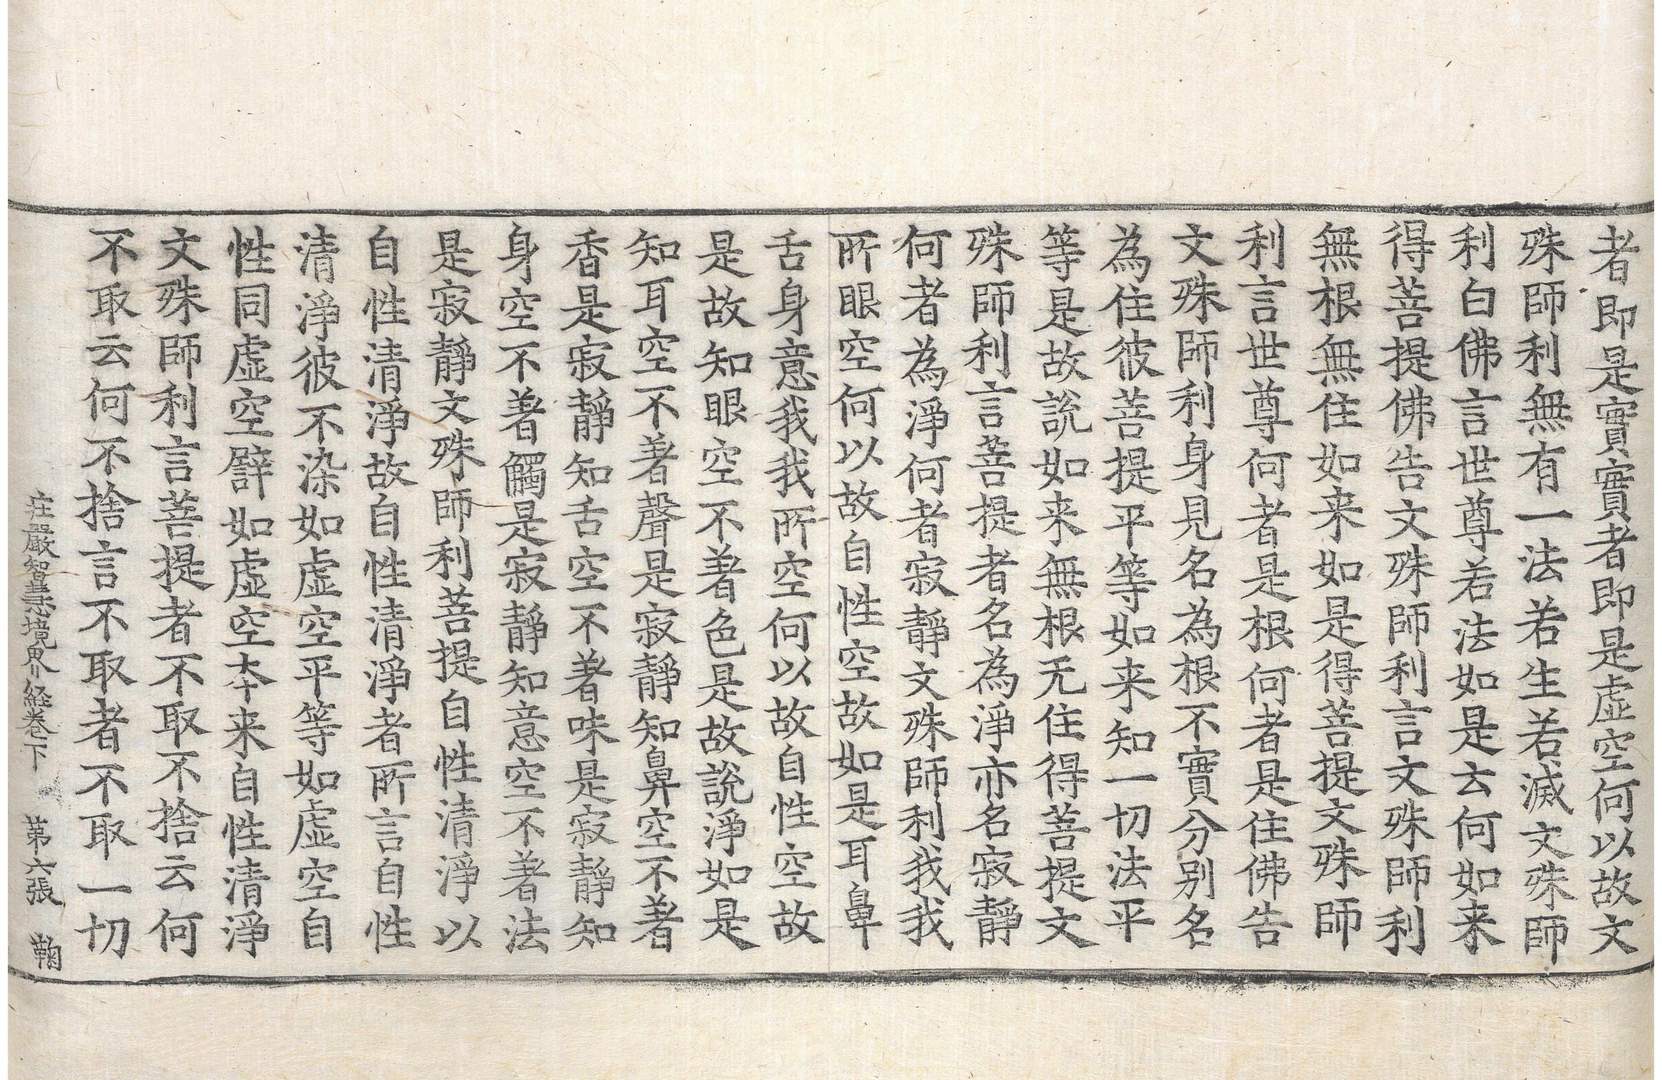 者即是實實者即是虛空何以故文
殊師利無有一法若生若滅文殊師
利白佛言世尊若法如是云何如来
得菩提佛告文殊師利言文殊師利
無根無住如来如是得菩提文殊師
利言世尊何者是根何者是住佛告
文殊師利身見名為根不實分別名
為住彼菩提平等如来知一切法平
等是故說如来無根无住得菩提文
殊師利言菩提者名為淨亦名寂靜
何者為淨何者寂靜文殊師利我我
所眼空何以故自性空故如是耳鼻
舌身意我我所空何以故自性空故
是故知眼空不著色是故說淨如是
知耳空不著聲是寂靜知鼻空不著
香是寂靜知舌空不著味是寂靜知
身空不著觸是寂靜知意空不著法
是寂靜文殊師利菩提自性清淨以
自性清淨故自性清淨者所言自性
清淨彼不染如虛空平等如虛空自
性同虛空譬如虛空本来自性清淨
文殊師利言菩提者不取不捨云何
不取云何不捨言不取者不取一切
庄嚴智慧境界経巻下　第六張　鞠